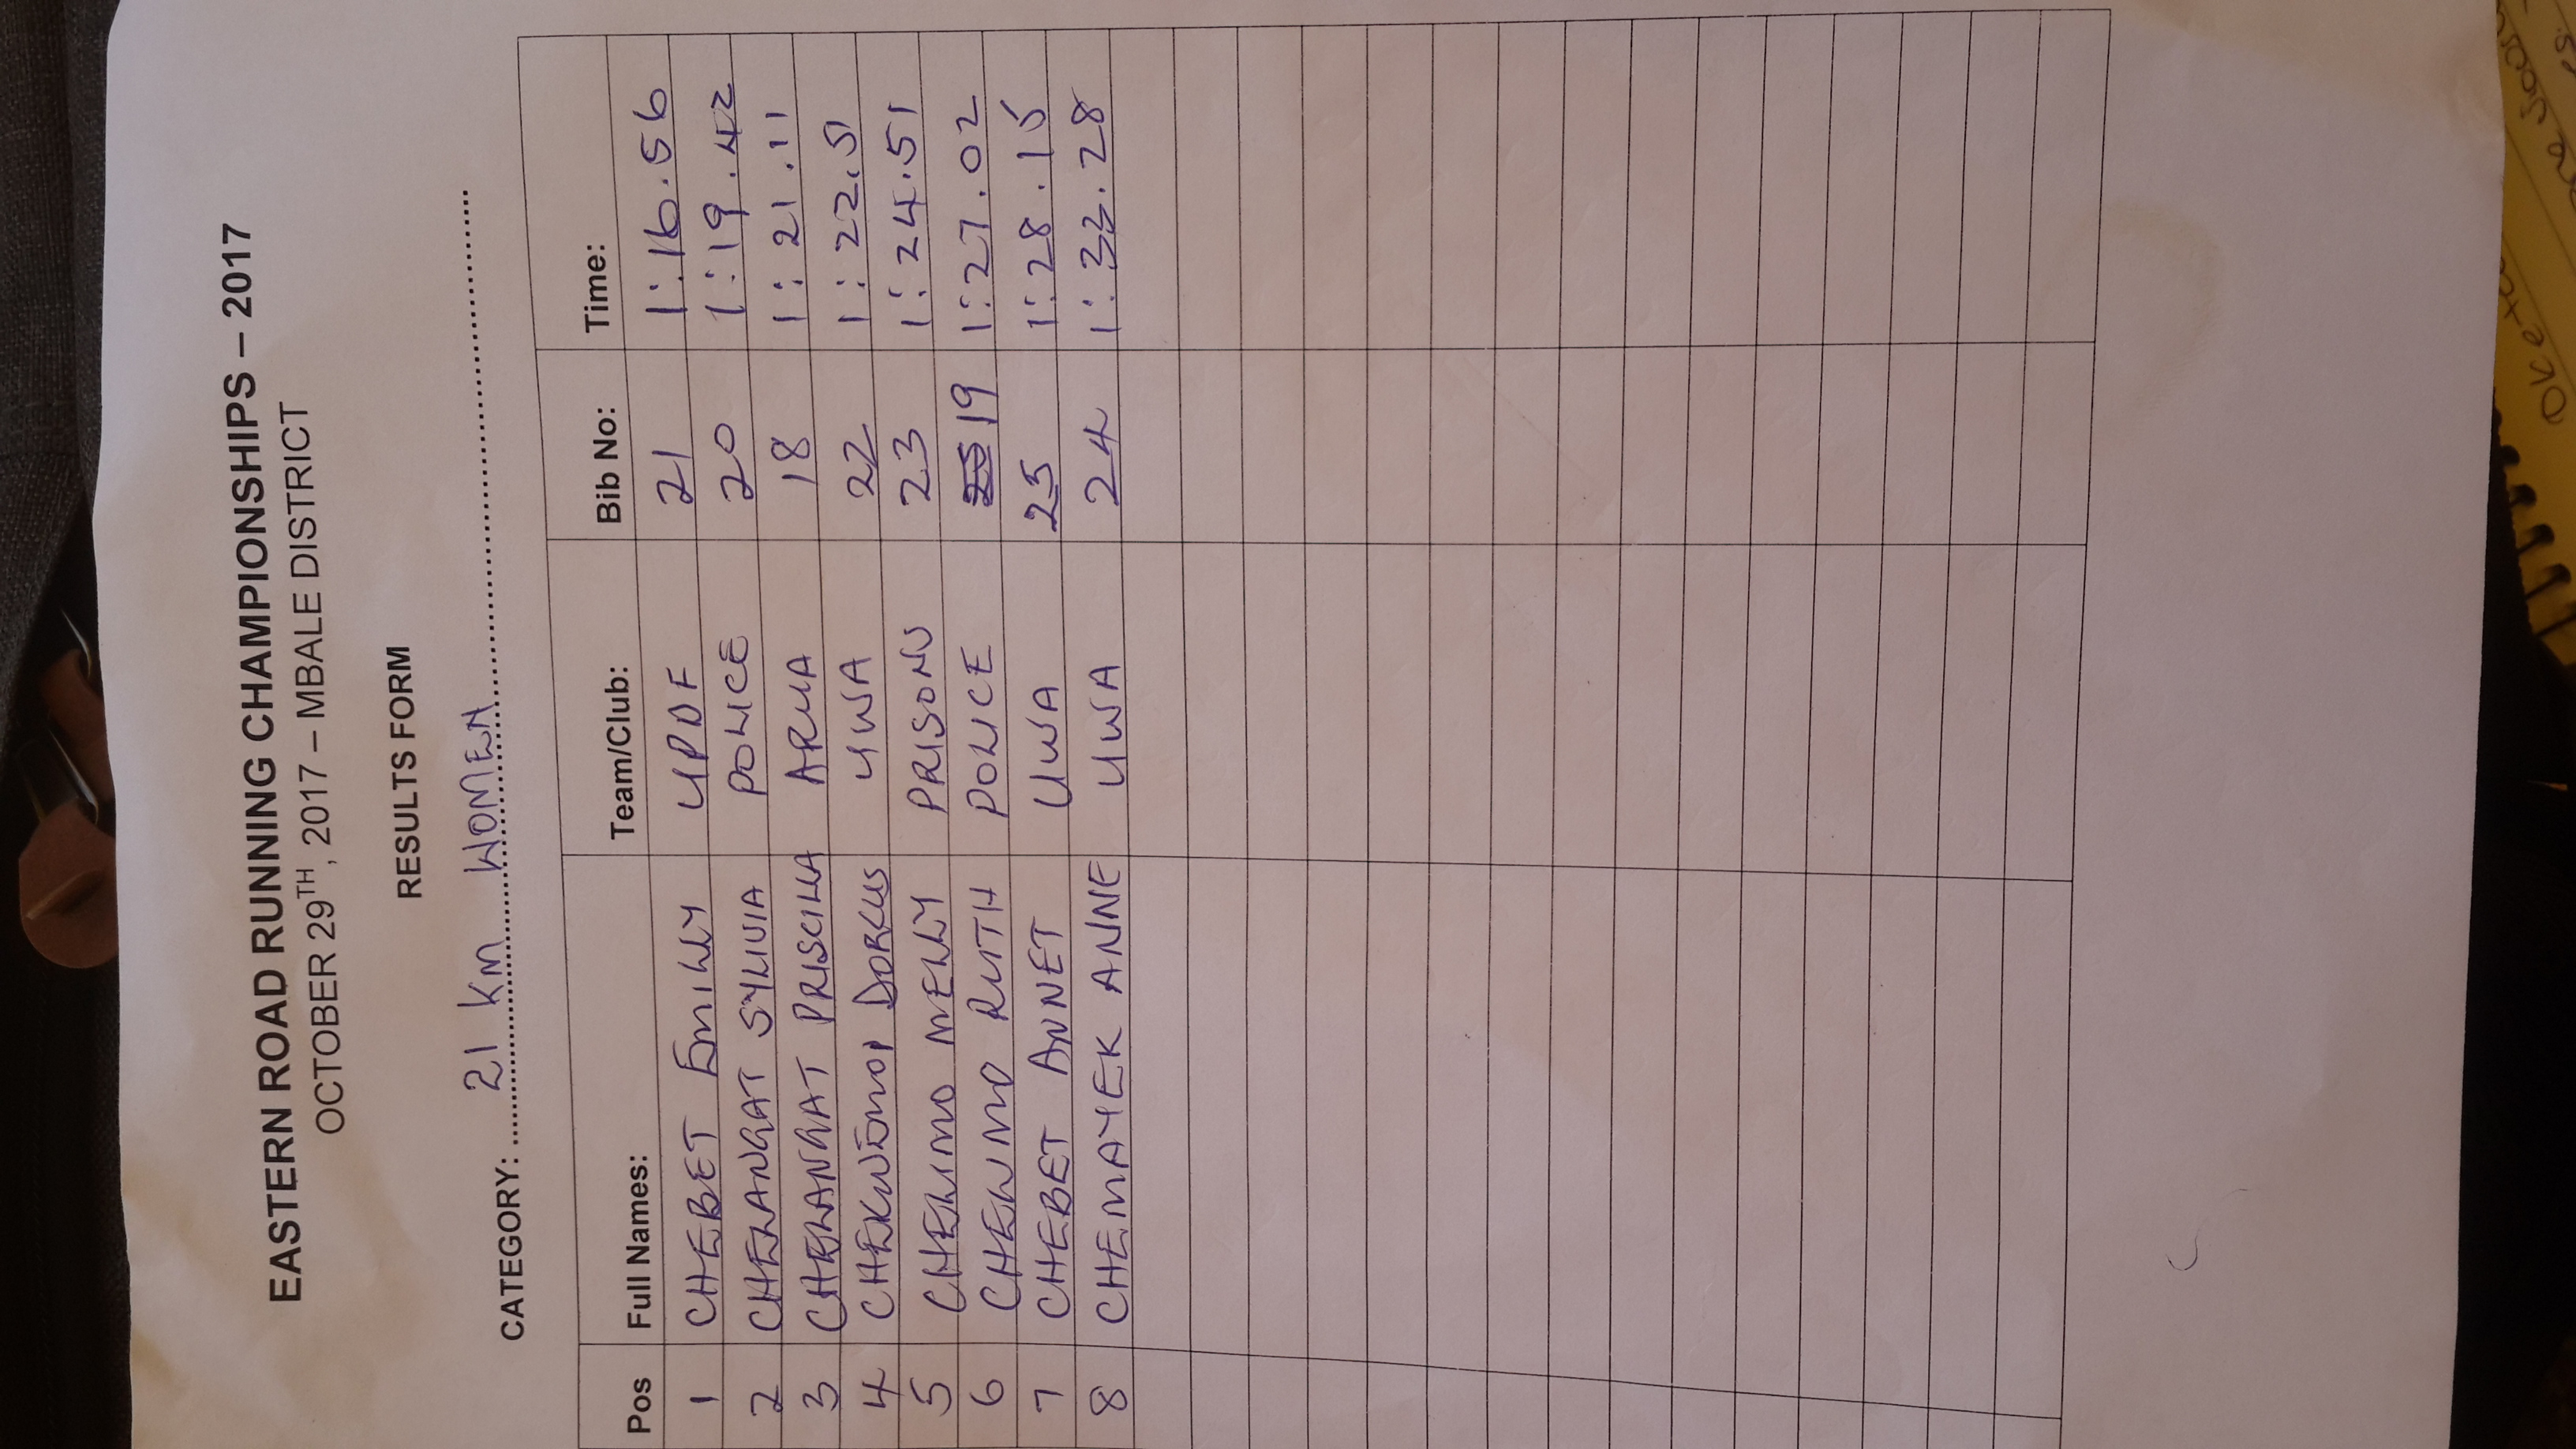 EASTERN ROAD RUNNING CHAMPIONSHIPS – 2017
OCTOBER 29TH, 2017 – MBALE DISTRICT
RESULTS FORM
CATEGORY: 21 Km WOMEN
Pos Full Names: Team/Club: Bib No: Time:
1 CHEBET EmiLLY UPDF 21 1:16.56
2 CHELANGAT SYLIVIA POLICE 20 1:19.42
3 CHELANGAT PRISCILLA ARUA 18 1:21.11
4 CHEKWEmoi DORCUS UWA 22 1:22.51
5 CHELIMO MELLY PRISONS 23 1:24.51
6 CHELIMO RUTH POLICE 19 1:27.02
7 CHEBET ANNET UWA 25 1:28.15
8 CHEMAYEK ANNE UWA 24 1:32.28